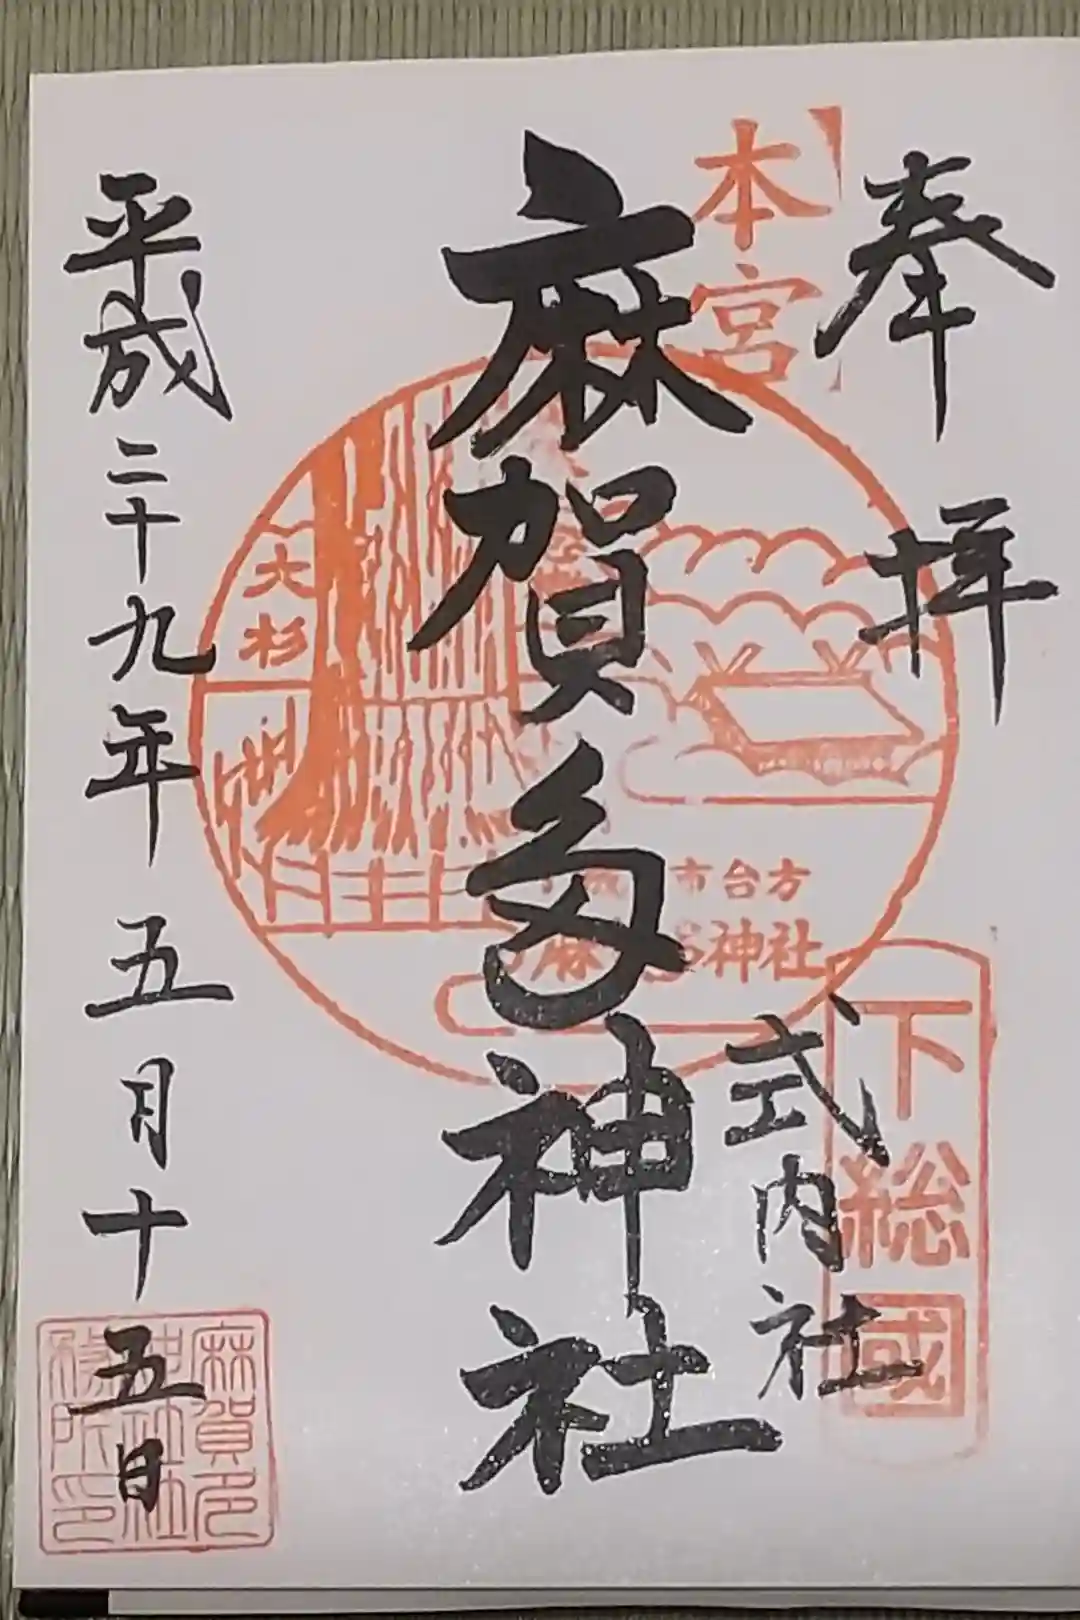 奉拝
本宮
下総國
式内社
麻賀多神社
大杉
市台方
神社
平成二十九年五月十五日
麻賀多
神社社
務所印